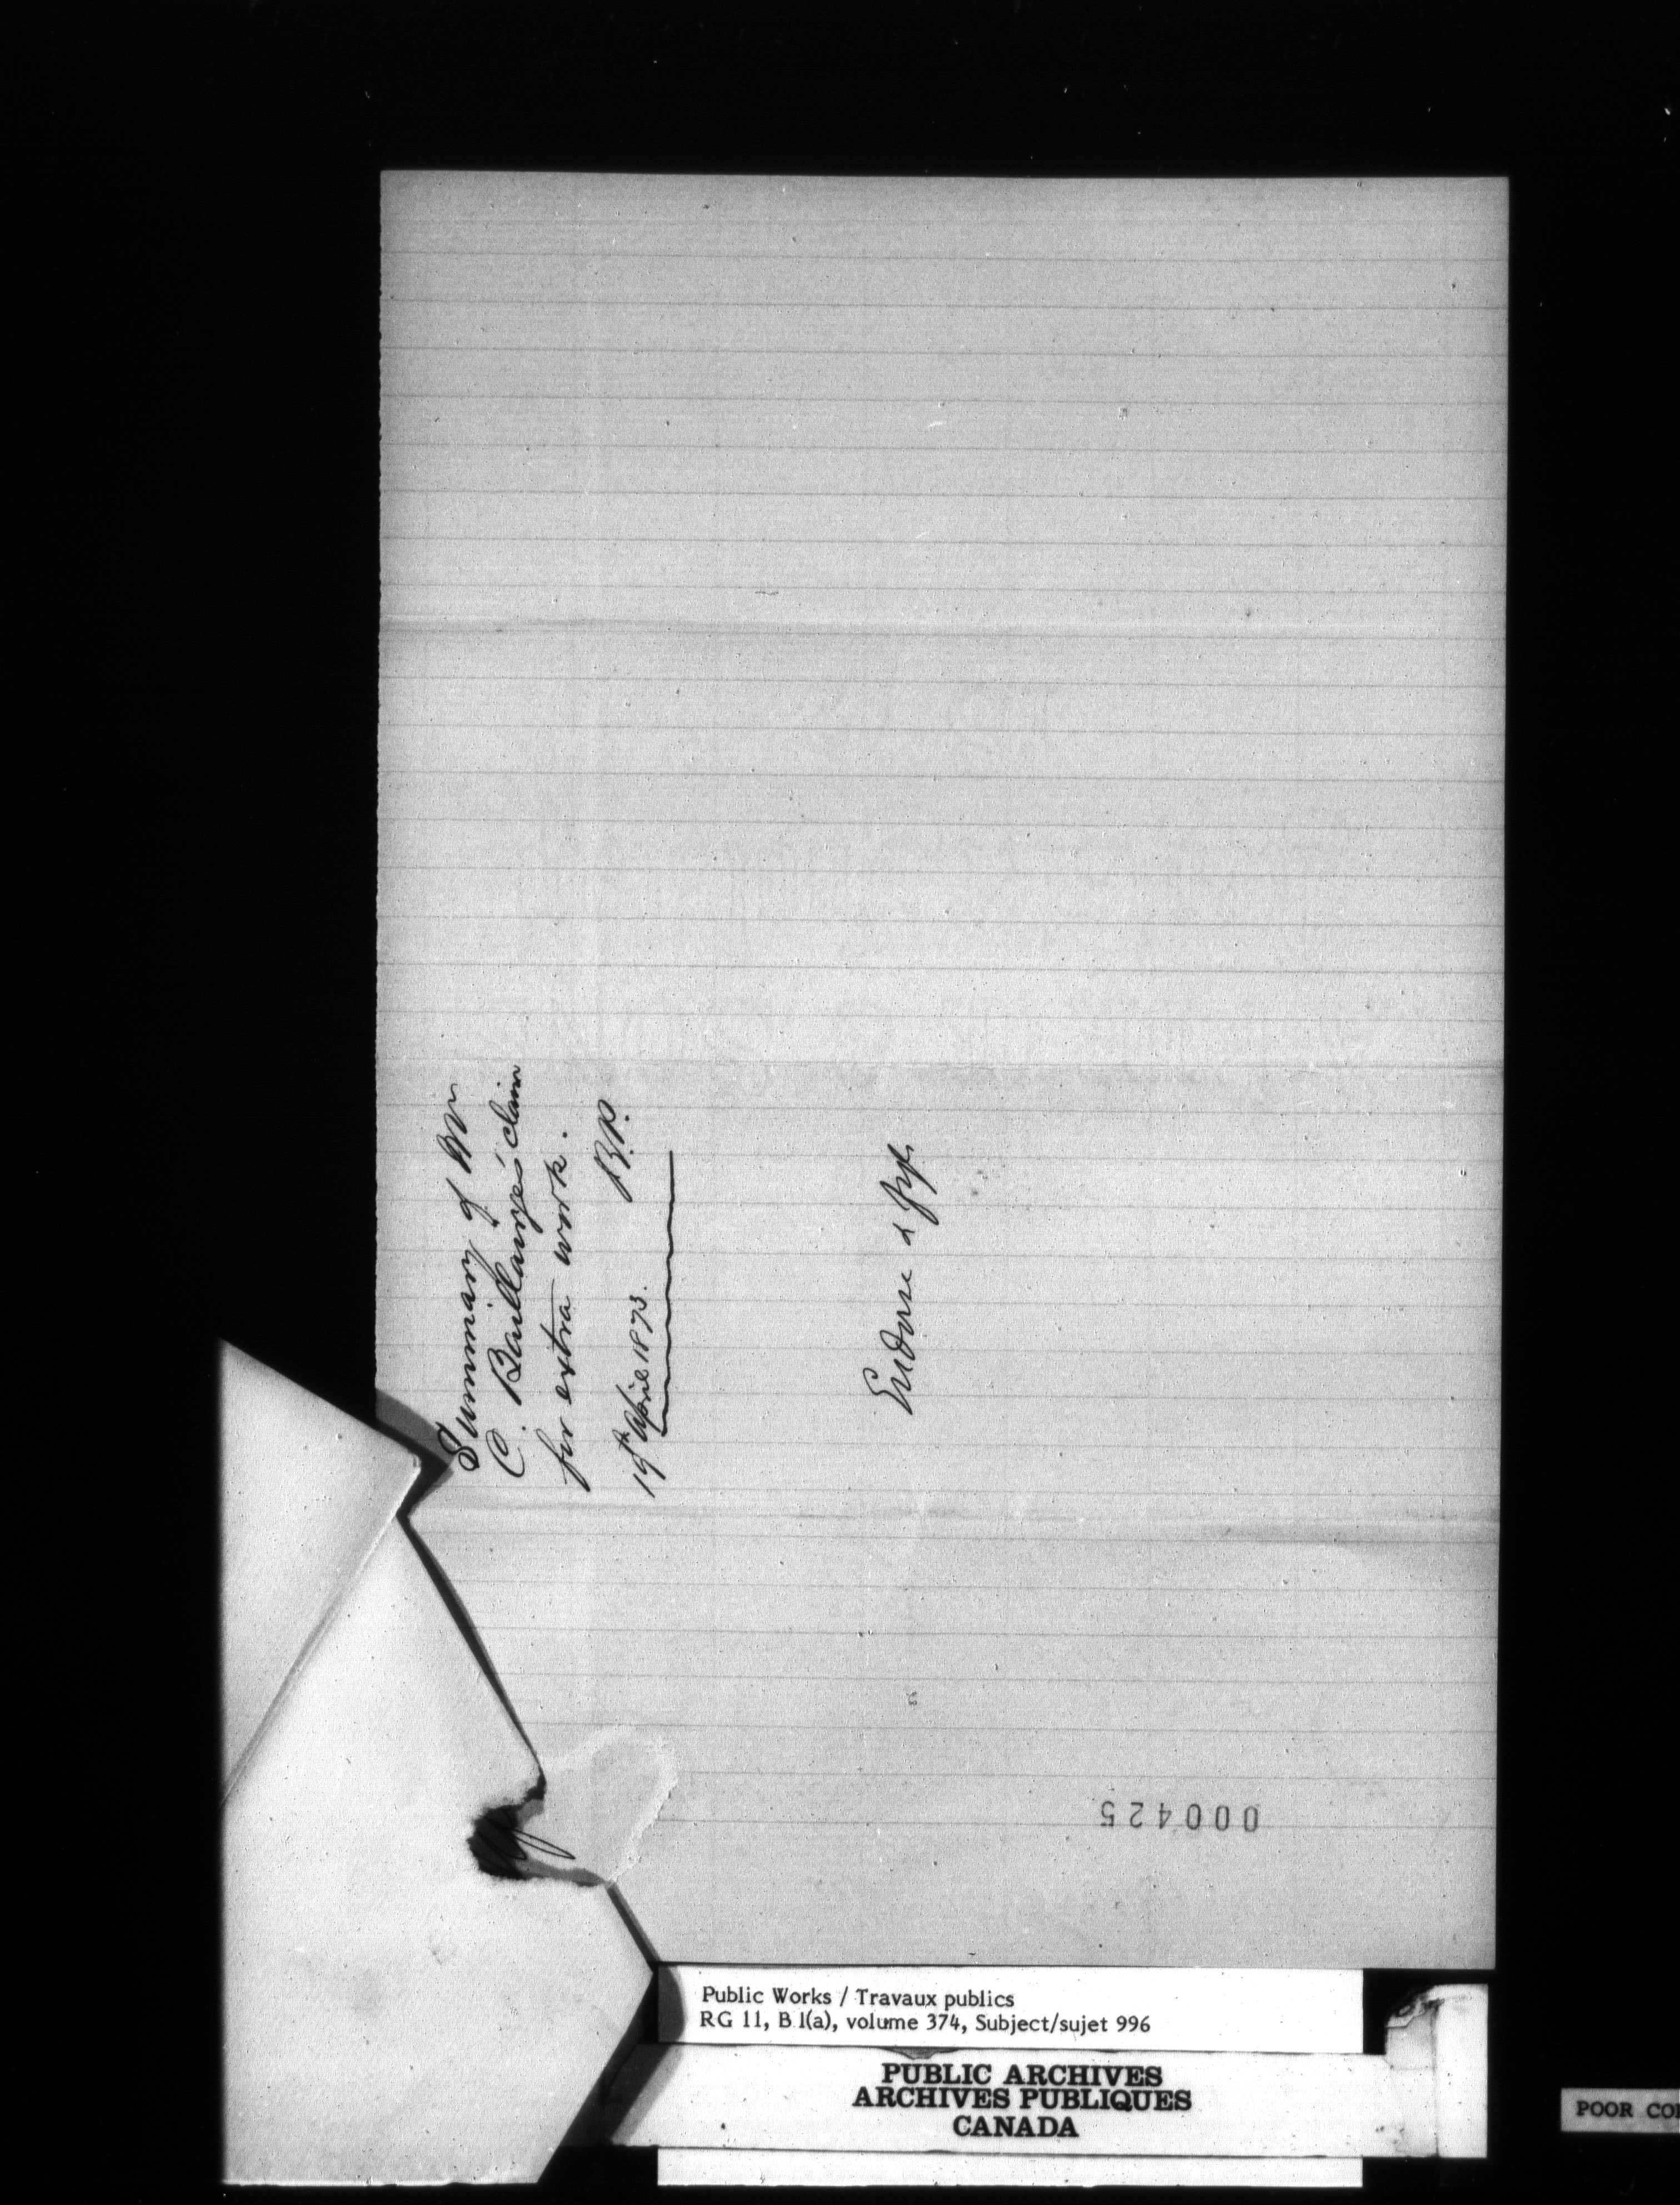 Summary of Mr
C. Baillairgé's claim
for extra work.
B.P.
19th April 1873.
Endorse & fyle
000425
Public Works / Travaux publics
RG 11, B 1(a), volume 374, Subject/sujet 996
PUBLIC ARCHIVES
ARCHIVES PUBLIQUES
CANADA
POOR COP